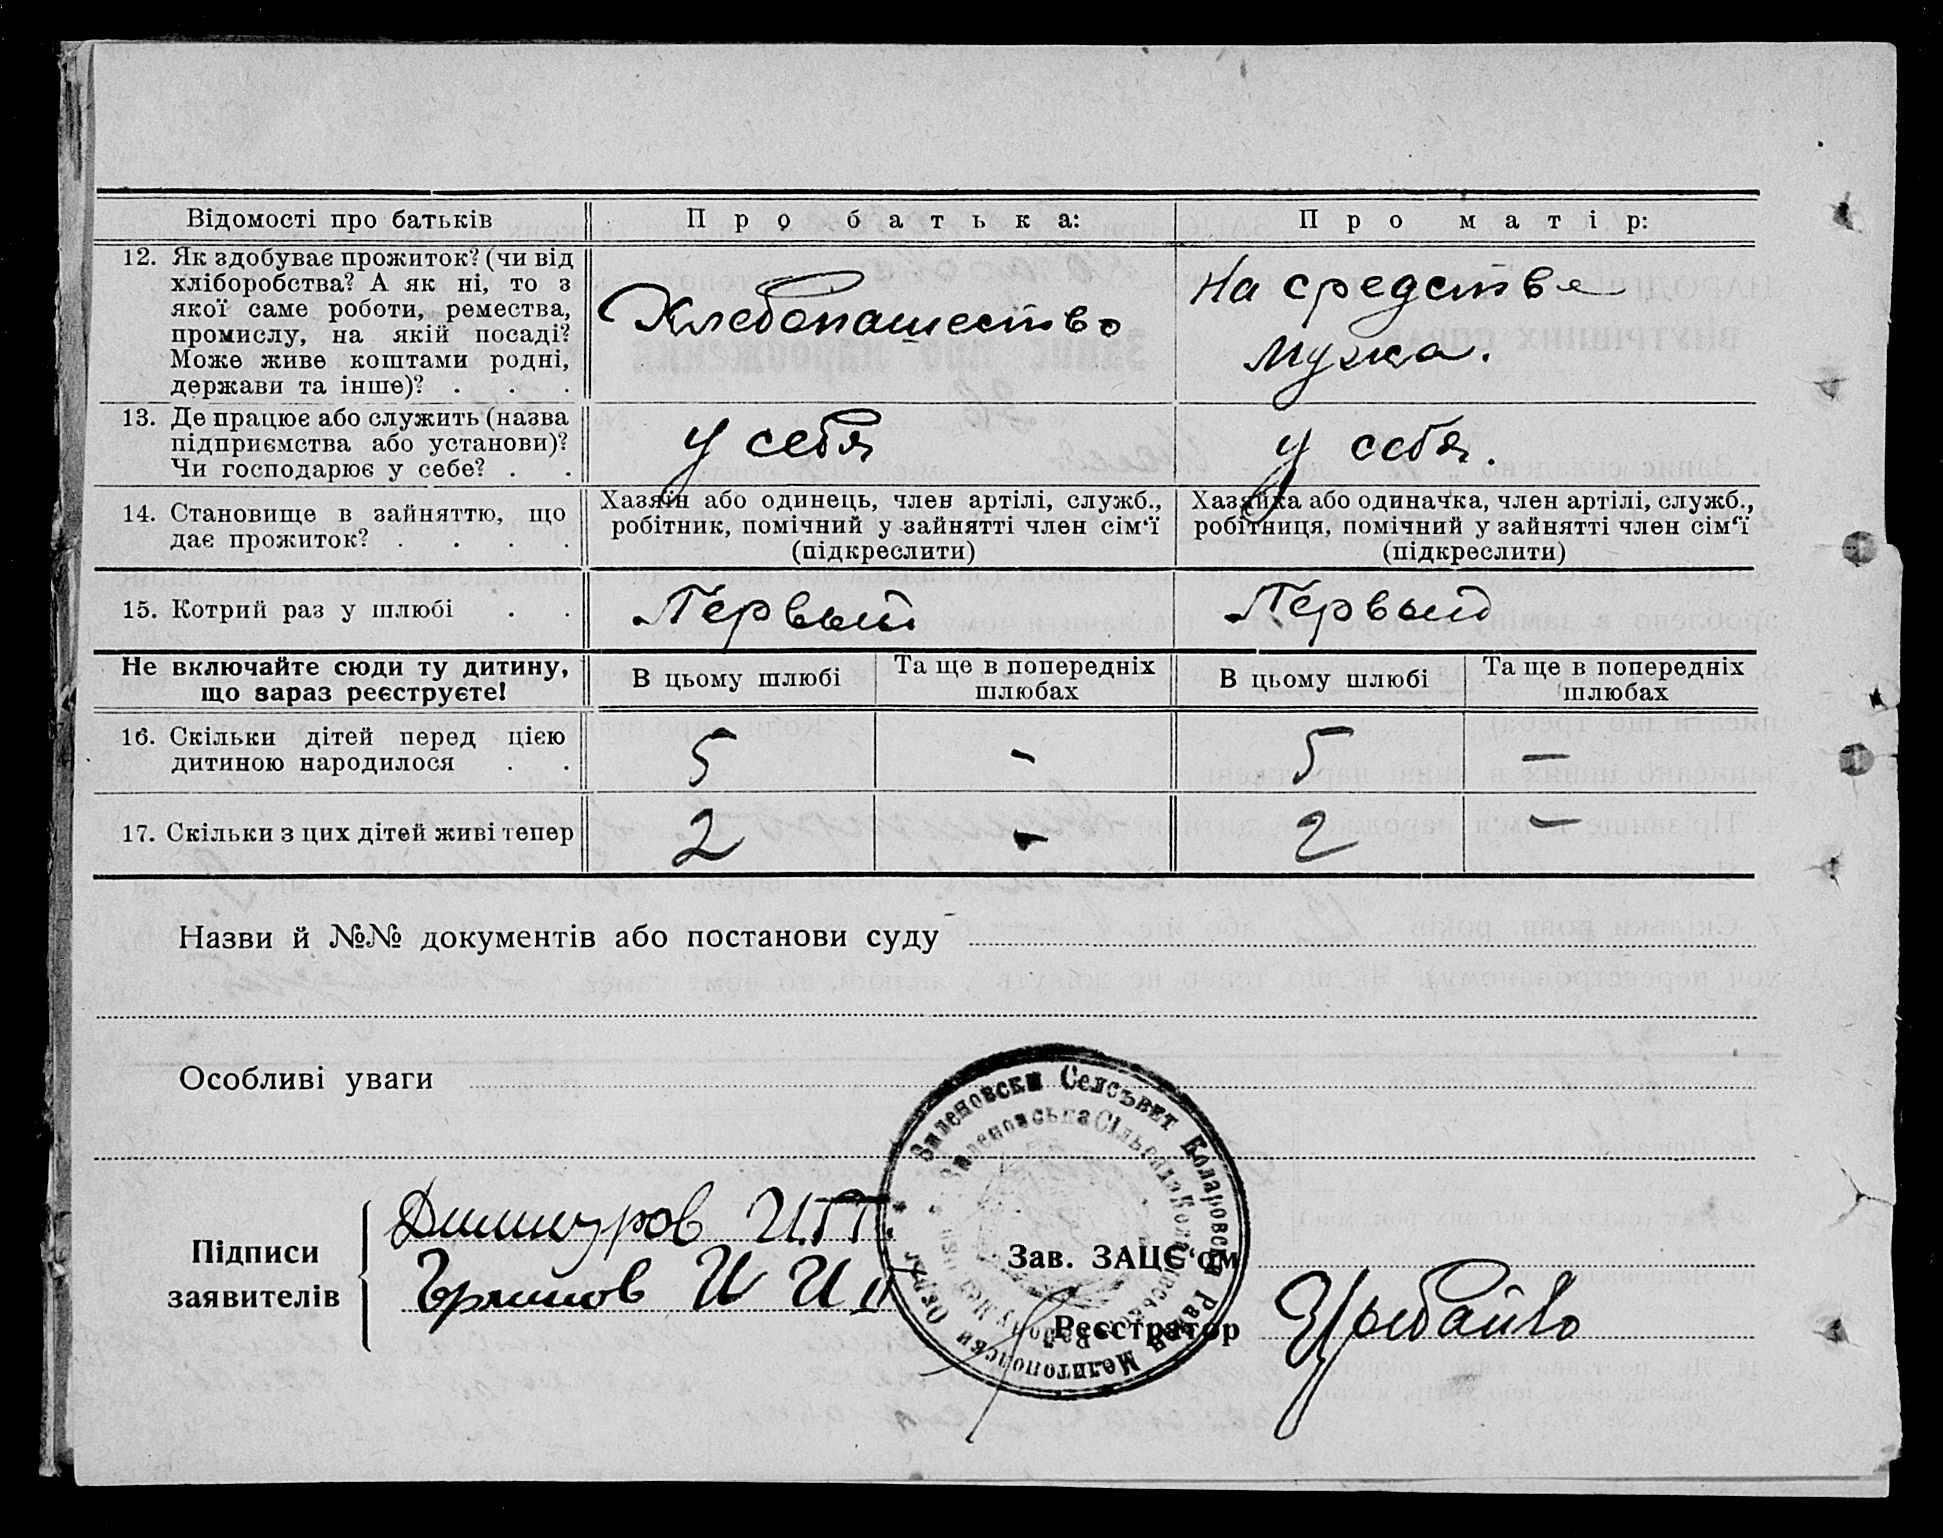 Відомості про батьків
Про батька:
Про матір:
12. Як здобуває прожиток? (чи від
хліборобства? А як ні, то з
якої саме роботи, ремества,
промислу, на якій посаді?
Може живе коштами родні,
держави та інше)? . . .
Хлебопашество
На средстве
Мужа.
13. Де працює або служить (назва
підприємства або установи)?
Чи господарює у себе? . .
у себя
у себя.
14. Становище в зайняттю, що
дає прожиток? . . . .
Хазяїн або одинець, член артілі, служб.,
робітник, помічний у зайнятті член сім'ї
(підкреслити)
Хазяйка або одиначка, член артілі, служб.,
робітниця, помічний у зайнятті член сім'ї
(підкреслити)
15. Котрий раз у шлюбі . .
Первый
Первый
Не включайте сюди ту дитину,
що зараз реєструєте!
В цьому шлюбі
Та ще в попередніх
шлюбах
В цьому шлюбі
Та ще в попередніх
шлюбах
16. Скільки дітей перед цією
дитиною народилося . .
5
-
5
-
17. Скільки з цих дітей живі тепер
2
-
2
-
Назви й №№ документів або постанови суду
Особливі уваги
Селсъвет Коларовски Мелитополски
Сільська
Підписи
заявителів
Зав. ЗАЦС'ом
Реєстратор